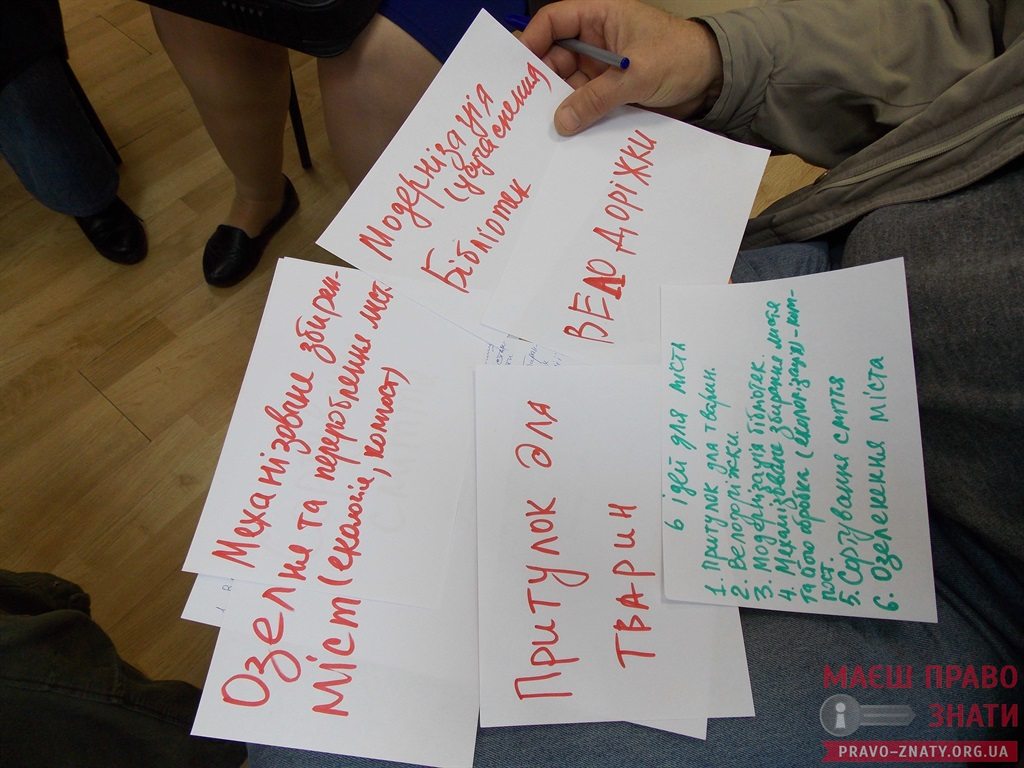 Модернізація
(удосконалення)
Бібліотек
ВЕЛОДОРІЖКИ
Механізоване збирен-
та перероблення міст.
(екологія, компост)
Озелне
Міст
Притулок для
тварин
6 ідей для міста
1. Притулок для тварин.
2. Велодоріжки.
3. Модернізація бібліотек.
4. Механізоване збирання листя
та його обробка (екологізація)-ком-
пост.
5. Сортування сміття
6. Озеленення міста
МАЄШ ПРАВО
ЗНАТИ
PRAVO-ZNATY.ORG.UA